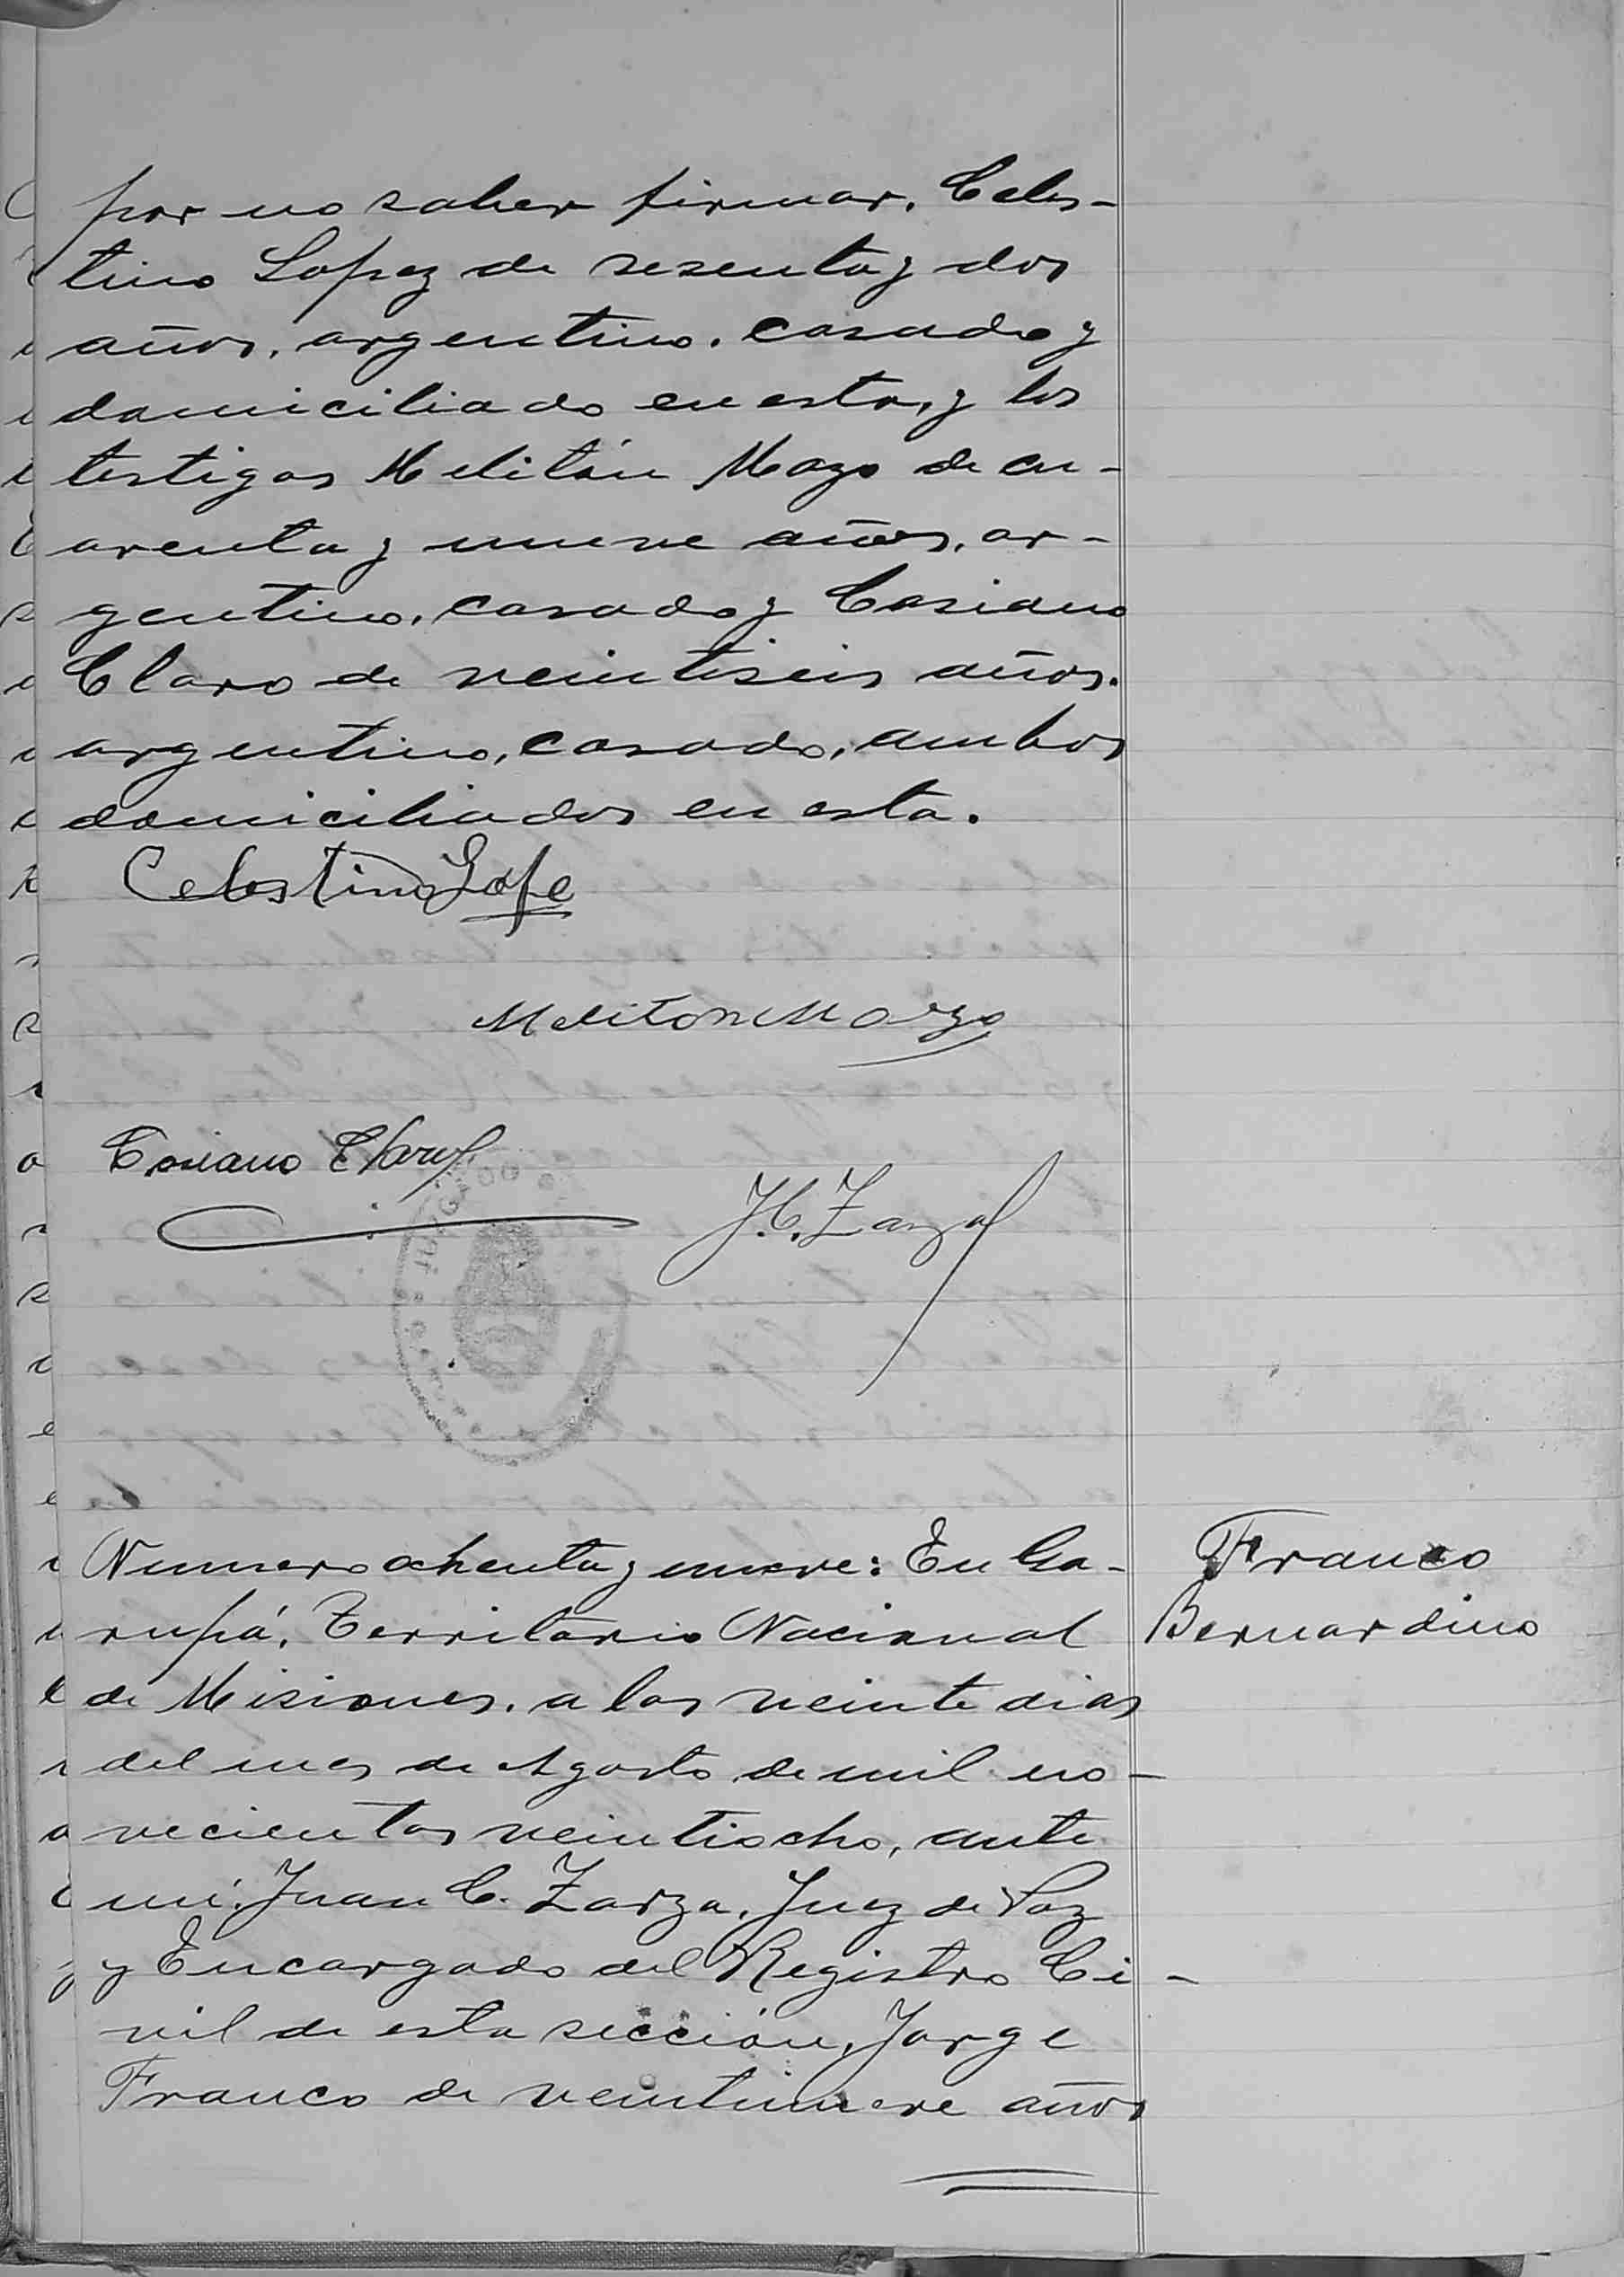 por no saber firmar, Celes-
tino Lopez de sesenta y dos
años, argentino, casado y
domiciliado en esta, y los
testigos Melitón Mazo de cu-
arenta y nueve años, ar-
gentino, casado y Casiano
Claro de veintiseis años,
argentino, casado, ambos
domiciliados en esta.
Celestino Lope
Meliton Mazo
Casiano Claro
J. C. Zarza
JUZGADO
Numero ochenta y nueve: En Ga-
rupá, Territorio Nacional
de Misiones, a los veinte dias
del mes de Agosto de mil no-
vecientos veintiocho, ante
mi, Juan C. Zarza, Juez de Paz
y Encargado del Registro Ci-
vil de esta sección, Jorge
Franco de veintinueve años
Franco
Bernardino